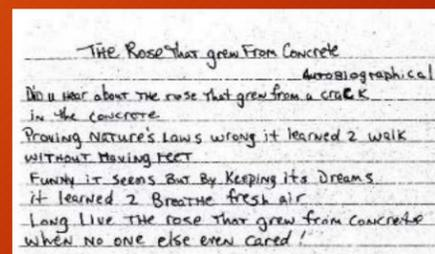 The Rose That grew From Concrete
Autobiographical
Did u hear about The rose That grew from a crack
in the concrete
Proving Nature's Laws wrong it learned 2 walk
without Having Feet
Funny it seems But By Keeping its Dreams
it learned 2 Breathe fresh air
Long Live The rose That grew from concrete
when no one else even cared!